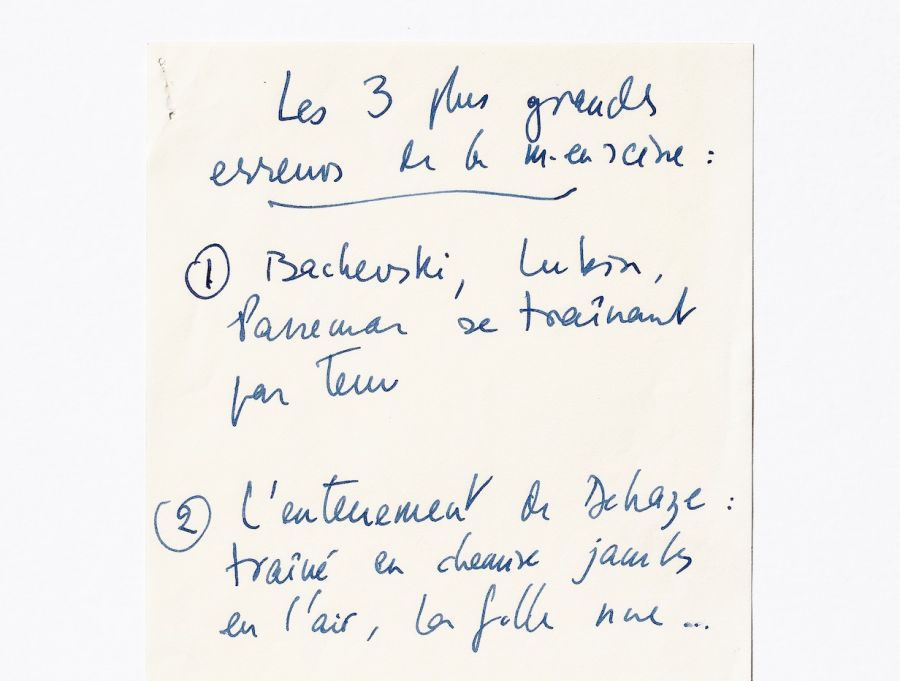 Les 3 plus grandes
erreurs de la m.en scène :
① Bachevski, Lubin,
Passemar se traînant
par terre
② L'enterrement de Dehaze :
traîné en chemise jambes
en l'air, la fille nue ...